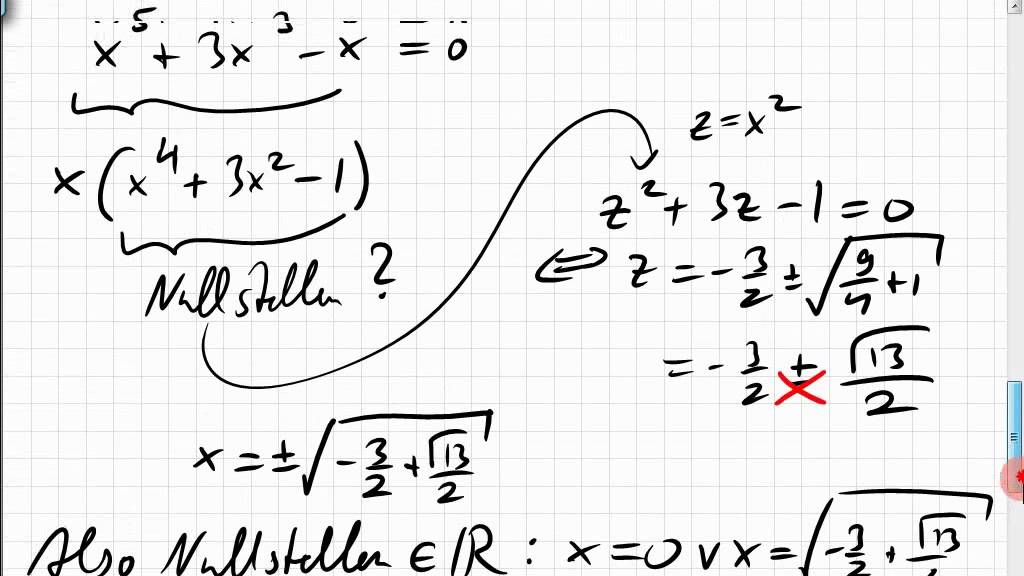 x⁵ + 3x³ - x = 0
x(x⁴ + 3x² - 1)
Nullstellen ?
z = x²
z² + 3z - 1 = 0
⇔ z = - 3/2 ± √(9/4 + 1)
= - 3/2 ± √13/2
x = ± √(- 3/2 + √13/2)
Also Nullstellen ∈ ℝ : x = 0 ∨ x = √(- 3/2 + √13